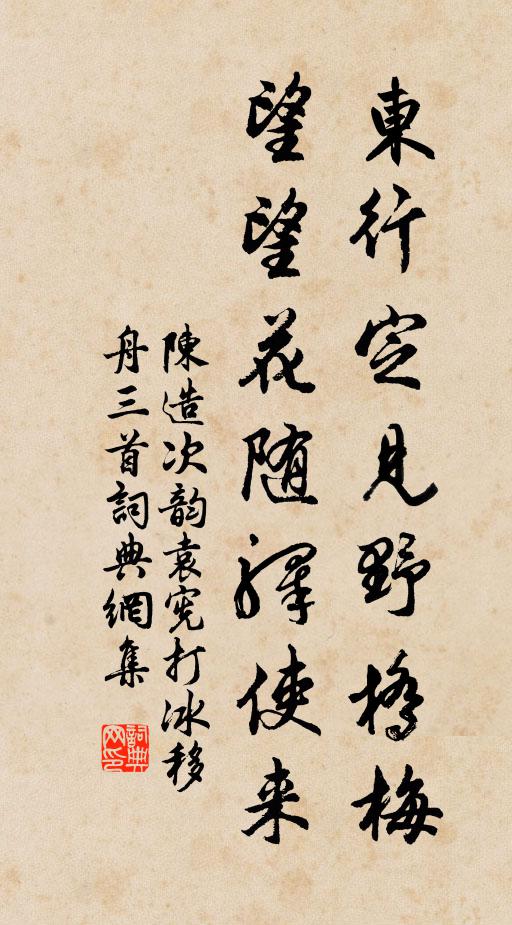 東行定見野橋梅
望望花随驛使来
陳造次韵袁宪打冰移
舟三首詞典網集
詞典网印